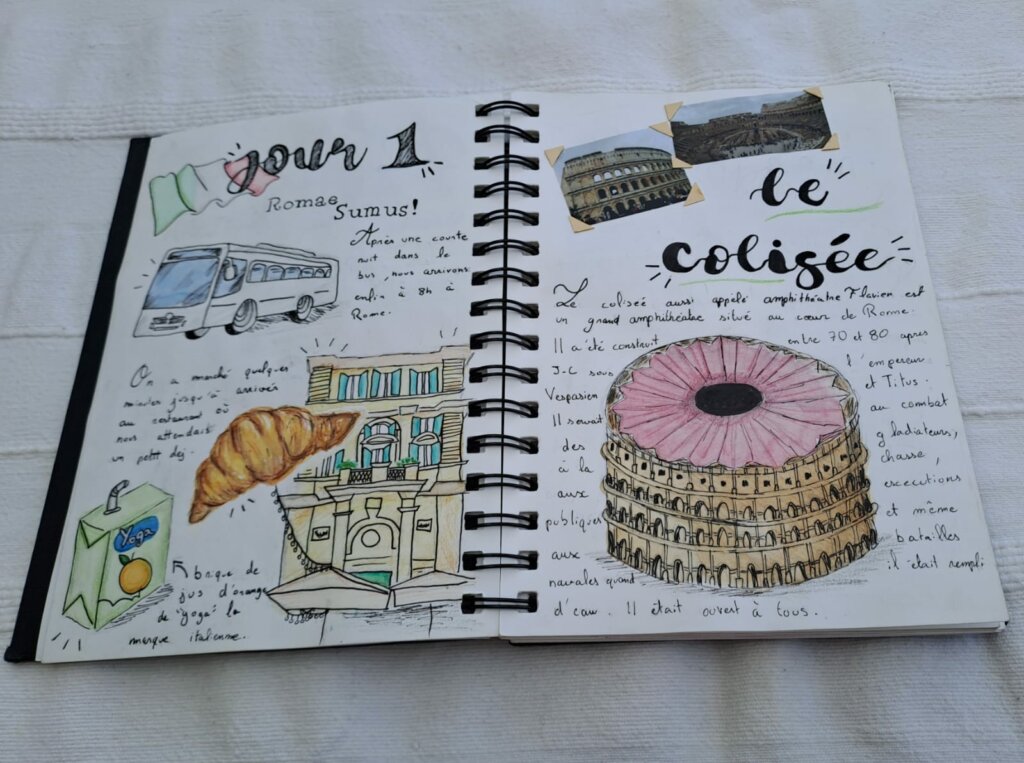 Jour 1
Romae Sumus!
Après une courte
nuit dans le
bus, nous arrivons
enfin à 8h à
Rome.
On a marché quelques
minutes jusqu'à arrivés
au restaurant où
nous attendait
un petit dej.
Yoga
brique de
jus d'orange
de "yoga" la
marque italienne.
le
colisée
Le coliseé aussi appelé amphithéatre Flavien est
un grand amphithéatre situé au cœur de Rome.
Il a été construit entre 70 et 80 apres
J-C sous l'empereur
Vespasien et Titus.
Il servait au combat
des gladiateurs,
à la chasse,
aux execcutions
publiques et même
aux batailles
navales quand il était rempli
d'eau. Il était ouvert à tous.